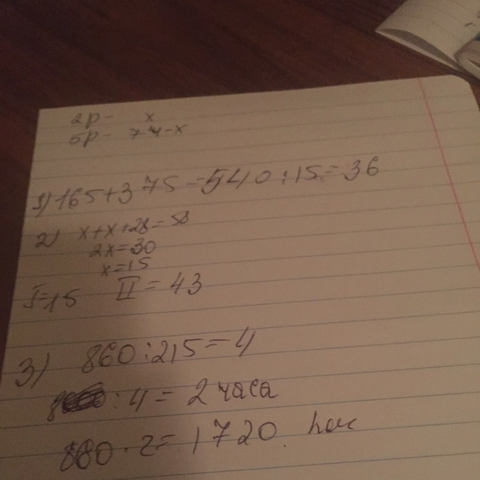 2р- x
5р- 74-x
1) 165+375=540:15=36
2) x+x+28=58
2x=30
x=15
I=15 II=43
3) 860:215=4
8 :4= 2 часа
860·2=1720